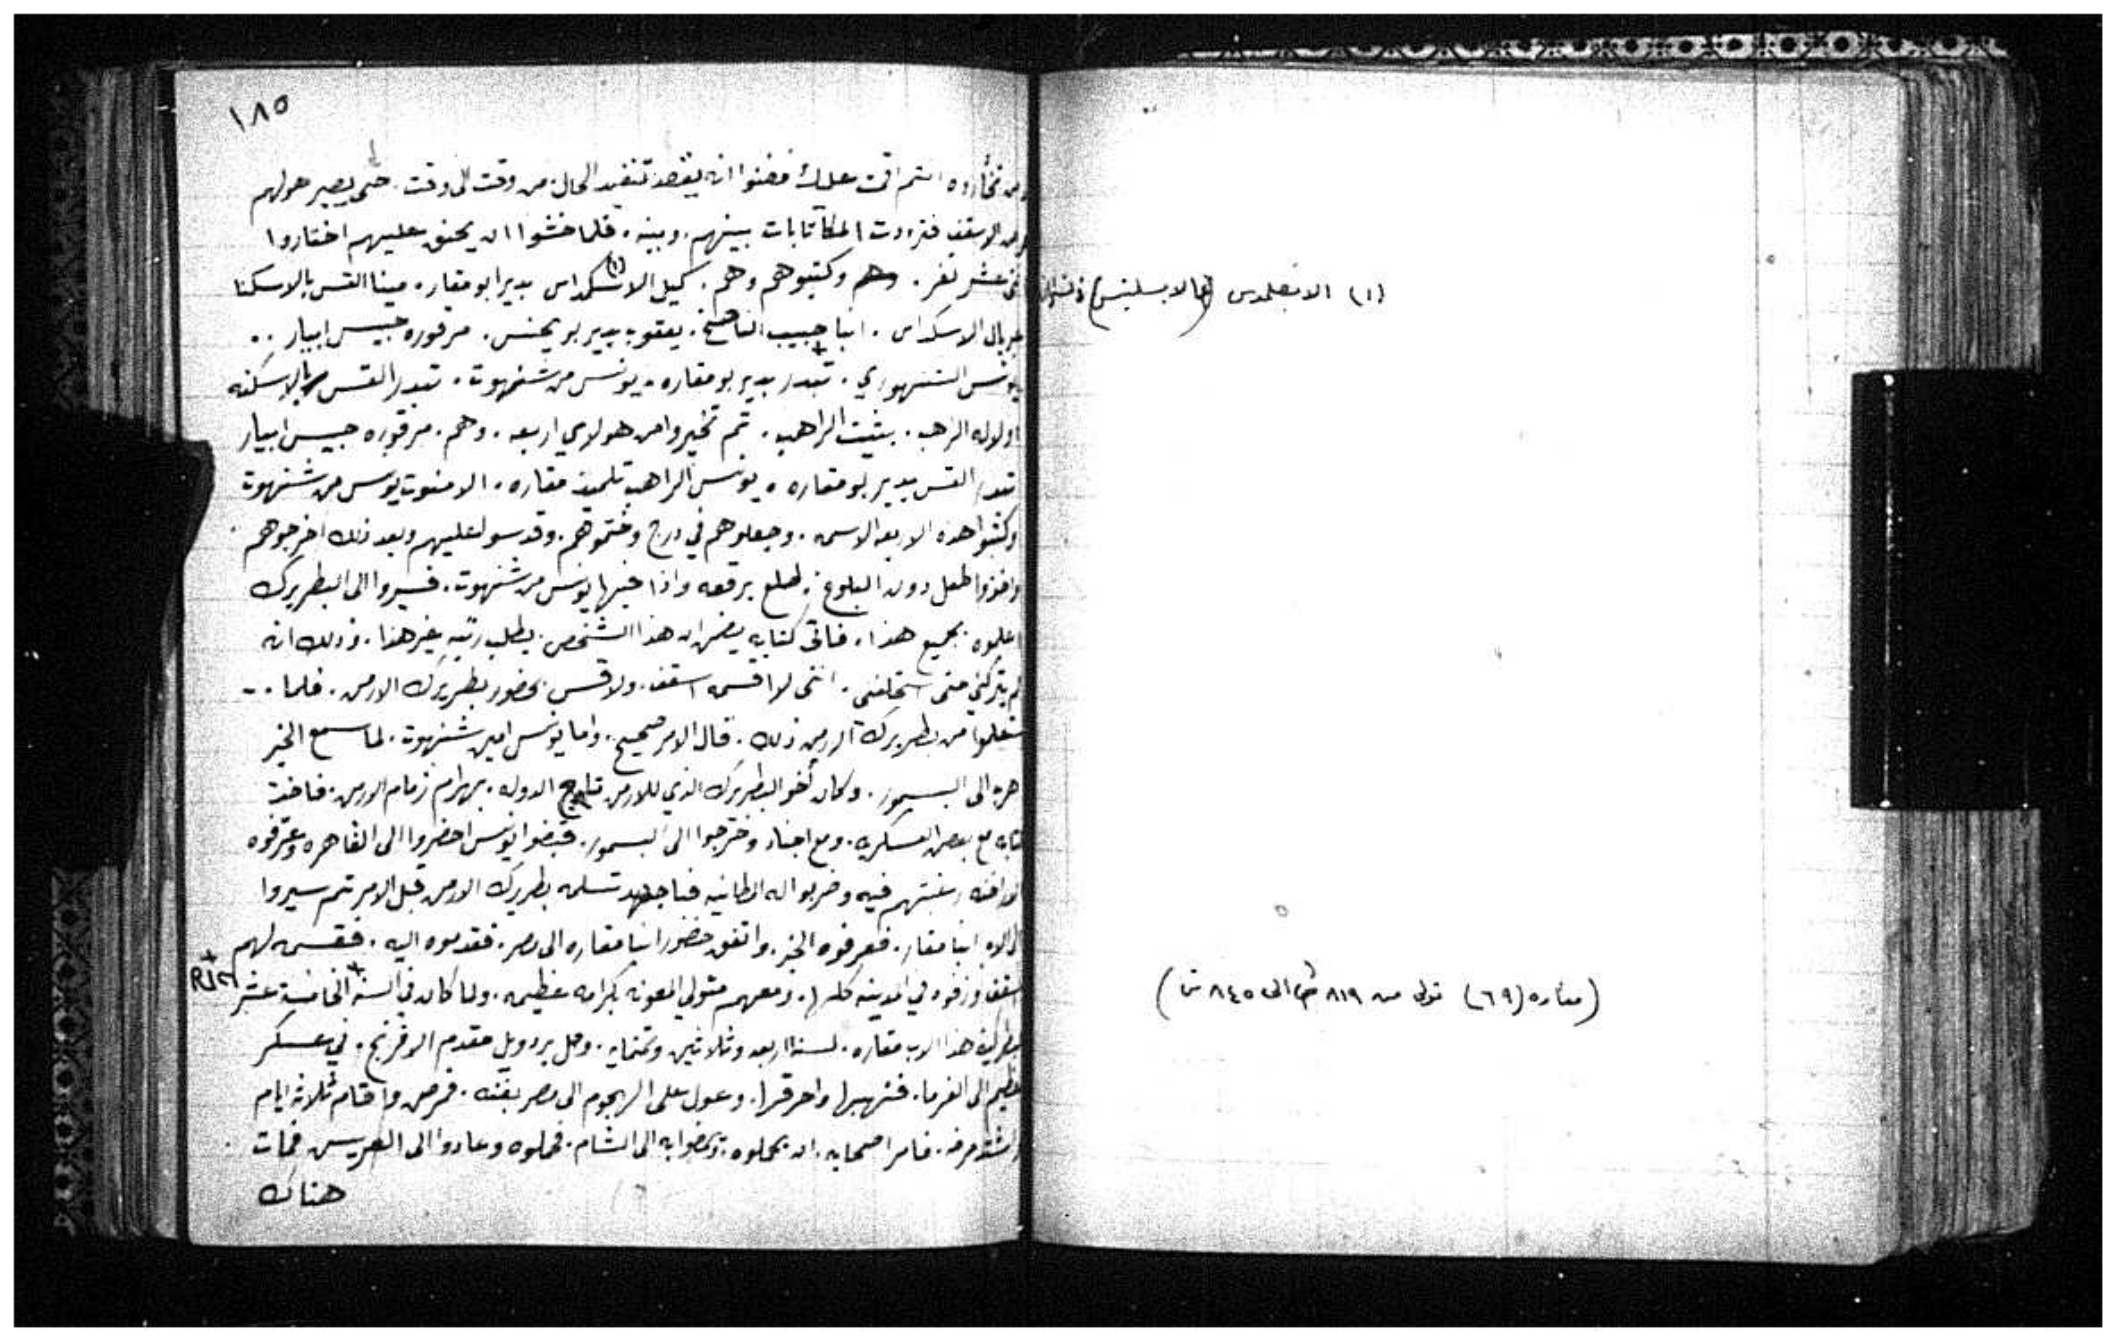 (١) الابصلمدس
(مقاره (٦٩) تولى من ٨١٩ ش الى ٨٤٥ ش)
١٨٥
انتم اقمت عليك فضنوا انه يقصد تنفيد الحال من وقت الى وقت. حتى يصير هولهم
الاسقف فترددت المكاتابات بينهم. وبينه. فلما خشوا ان يحنق عليهم اختاروا
عشر نفر. وكتبوهم وهم. كميل الاسكداس (١) بدير ابو مقاره. مينا القس بالاسكنا
الاسكداس. انبا حبيب الناسخ. يعقوب بدير بو يحنس. مرقوره حبيس ابيار..
يونس السنهوري. تيدر بدير بو مقاره. يونس من شنهوت. تيدر القس بالاسكنه
اولوله الراهب. بثيت الراهب. تم تخيروا من هولاي اربعه. وهم. مرقوره حبيس ابيار
تيدر القس بدير بو مقاره. يونس الراهب تلميذ مقاره. الامنوت يونس من شنهوت
وكتبوا هذه الاربعه الاسم. وجعلوهم في درج وختموهم. وقدسوا عليهم وبعد ذلك اخرجوهم
واخذوا طفل دون البلوغ. طلع برقعه واذا فيها يونس من شنهوت. فسيروا الى البطريرك
اعلموه بجميع هذا. فاتى كتابه يضمن ان هذا الشخص. يطلب رتبه غير هذا. وذلك انه
لم يتركني حتى استحلفنى. اننى لا اقسمه اسقف. ولا قس بحضور بطريرك الارمن. فلما..
من بطريرك الارمن ذلك. قال الامر صحيح. واما يونس امين شنهوت. لما سمع الخبر
هرب الى البسمور. وكان اخو البطريرك الذي للارمن تاج الدوله. بهرام زمام الارمن. فاخذت
كتابه مع بعض العسكريه. ومع اجناد وخرجوا الى البسمور. فقبضوا يونس احضروا الى القاهره وعرفوه
رغبتهم فيه وضربوا له المطانيه فناجهد تسلمه بطريرك الارمن قبل الامر تم سيروا
الى الاب انبا مقار. فعرفوه الخبر. واتفق حضور انبا مقاره الى مصر. فقدموه اليه. فقسمه لهم
اسقف وزفوه في المدينه كلها. ومعهم متولي المعونه بكرامه عظيمه. ولما كان في السنه الخامسة عشر
هذا الاب مقاره. لسنه اربعه وثلاثين وتمنمايه. وصل بردويل مقدم الافرنج. في عسكر
عظيم الى الفرما. فنهبها واحرقها. وعول على الهجوم الى مصر بغته. فمرض واقام ثلاثة ايام
واشتد مرضه. فامر اصحابه. ان يحملوه. ويمضوا به الى الشام. فحملوه وعادوا الى العريس فمات
هناك